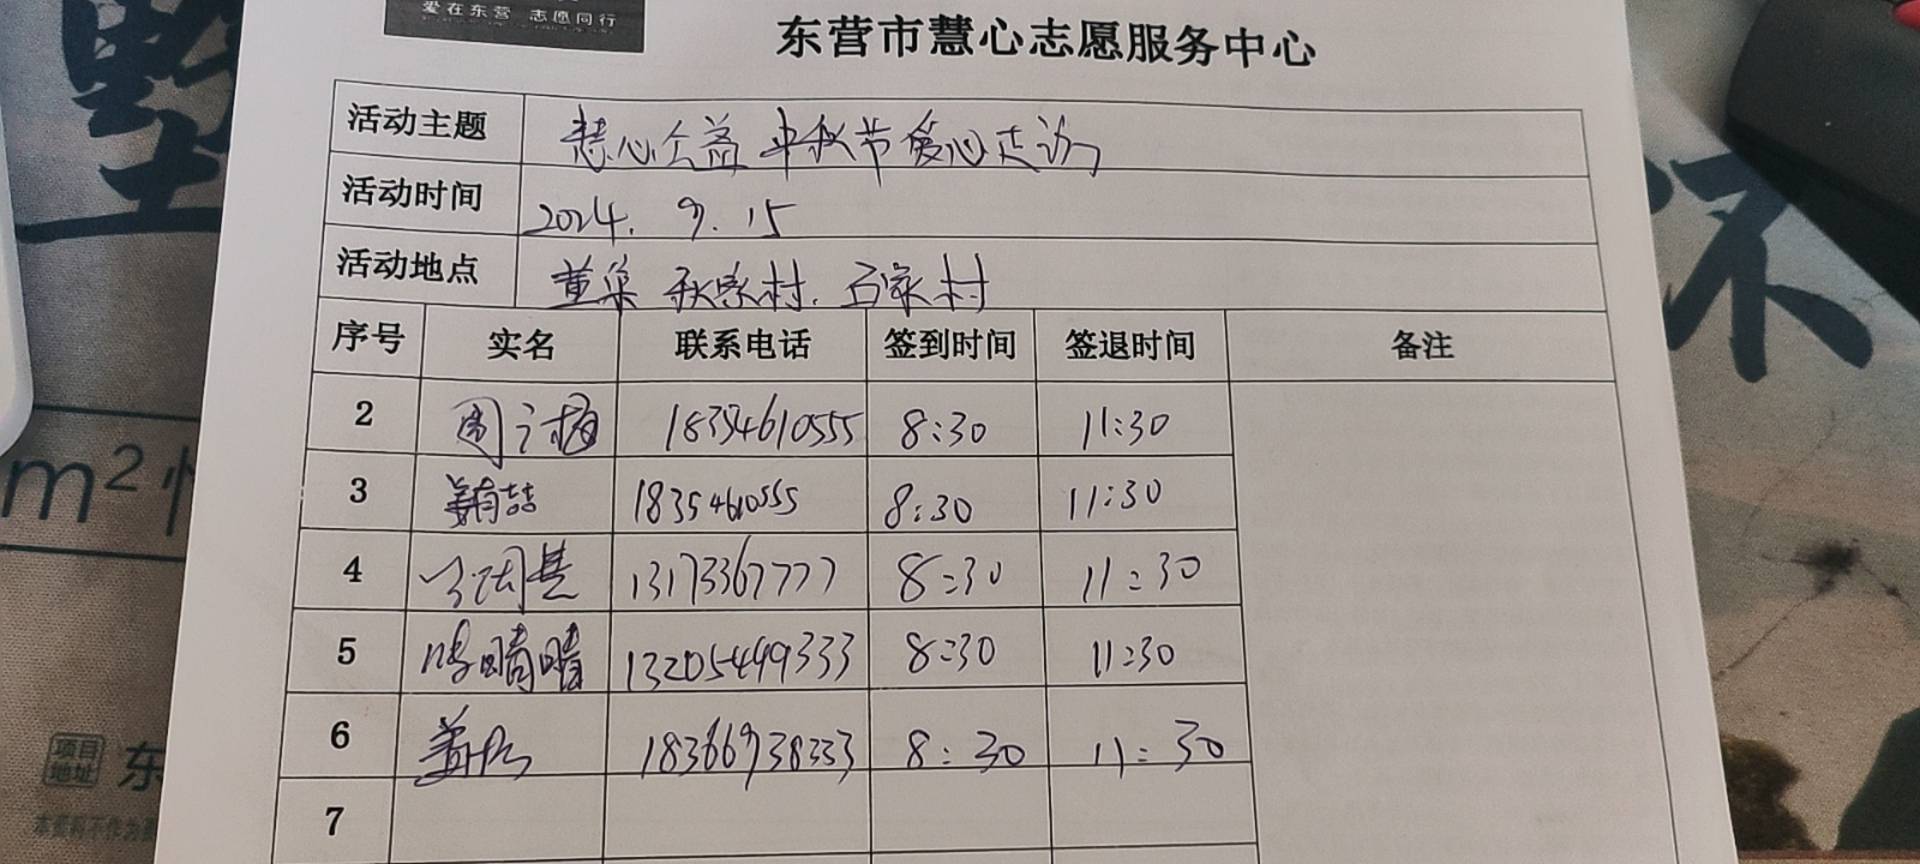 爱在东营 志愿同行
东营市慧心志愿服务中心
活动主题 慧心公益 中秋节爱心走访
活动时间 2024. 9. 15
活动地点 董集 耿家村. 石家村
序号 实名 联系电话 签到时间 签退时间 备注
2 18354610555 8:30 11:30
3 18354610555 8:30 11:30
4 13173367777 8:30 11:30
5 晴晴 13205449333 8:30 11:30
6 18366938333 8:30 11:30
7
m²
项目
地址
东